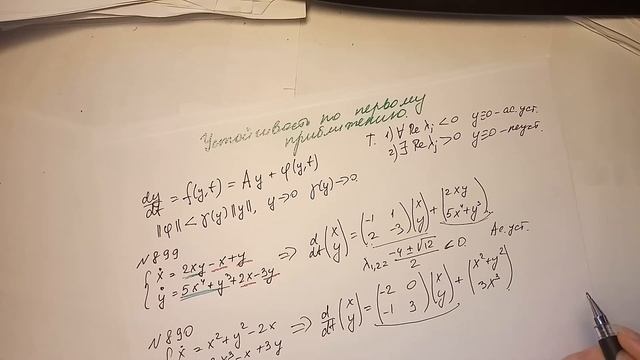 Устойчивость по первому
приближению.
Т. 1) ∀ Re λj < 0 y≡0 – ас. уст.
2) ∃ Re λj > 0 y≡0 – неуст.
dy/dt = f(y,t) = Ay + φ(y,t)
‖φ‖ < γ(y)‖y‖, y→0 γ(y)→0.
N899
{ ẋ = 2xy - x + y
ẏ = 5x⁴ + y³ + 2x - 3y
⇒ d/dt (x y) = (-1 1 2 -3)(x y) + (2xy 5x⁴ + y³)
λ1,2 = (-4 ± √12)/2 < 0. Ас. уст.
N890
{ ẋ = x² + y² - 2x
x³ - x + 3y
⇒ d/dt (x y) = (-2 0 -1 3)(x y) + (x² + y² 3x³)